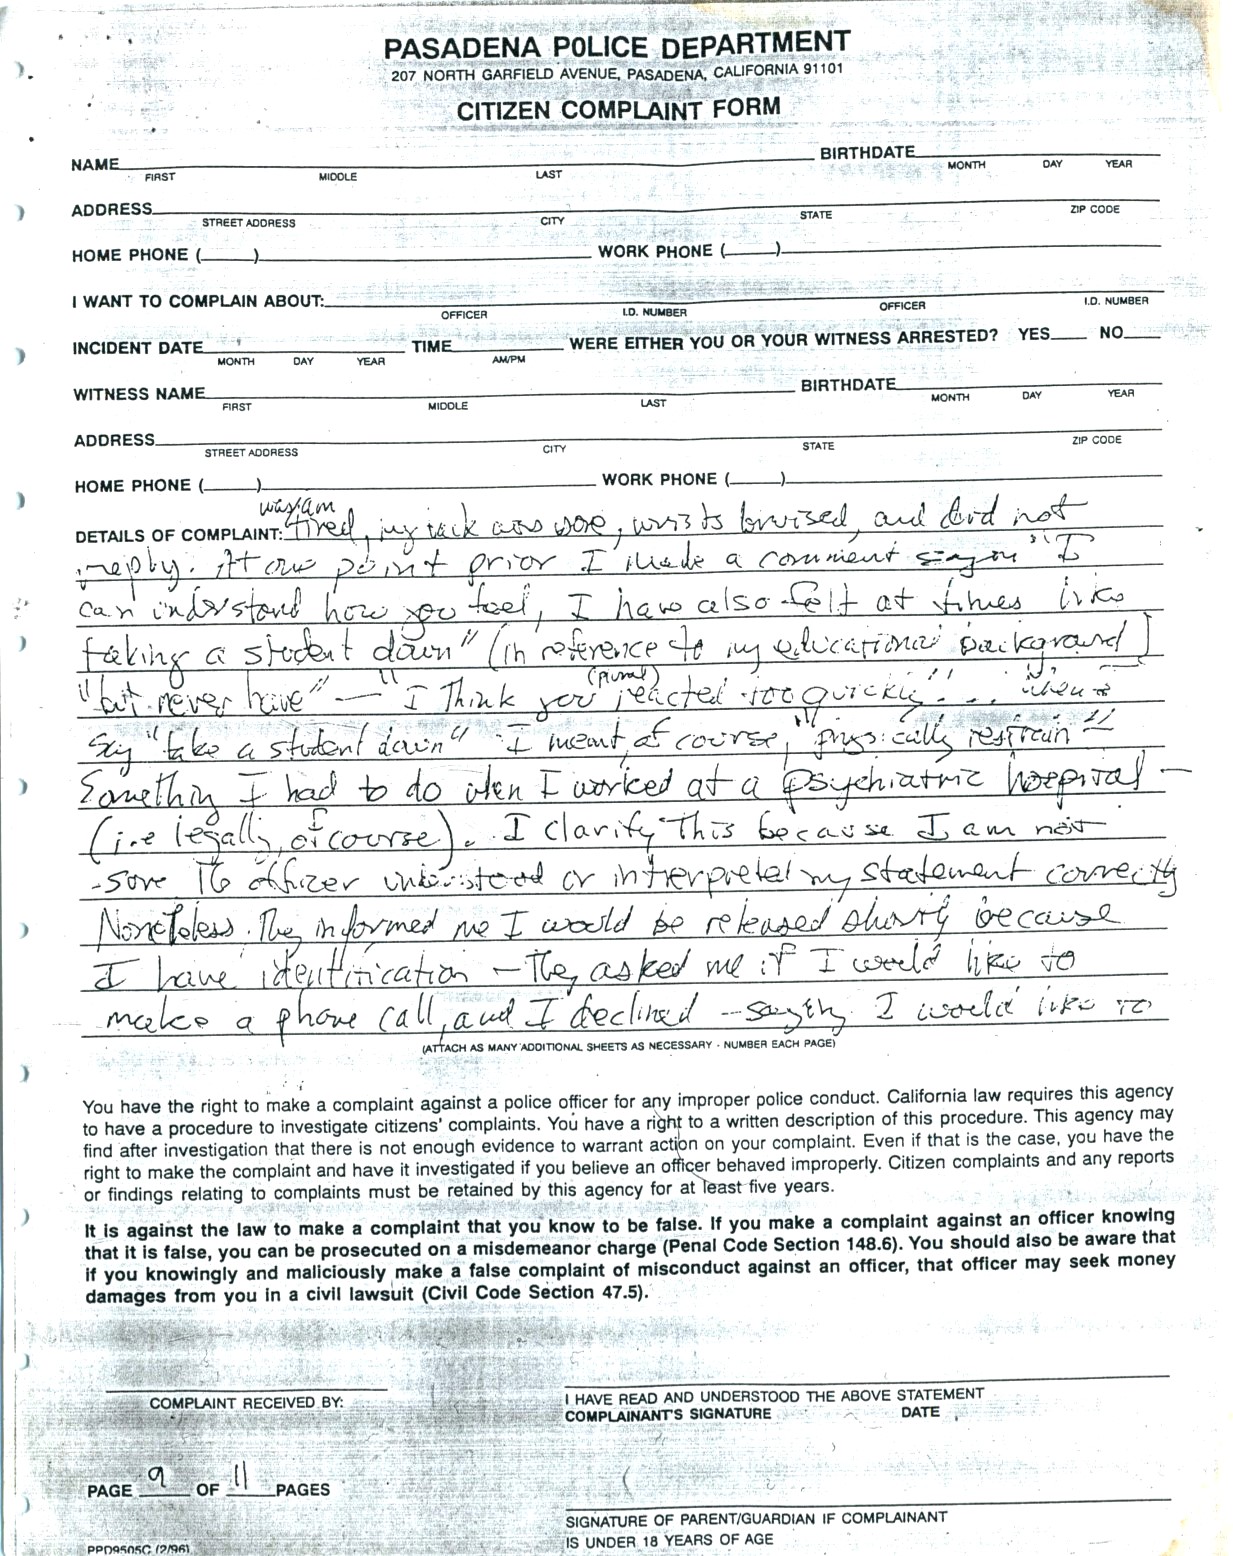 PASADENA POLICE DEPARTMENT
207 NORTH GARFIELD AVENUE, PASADENA, CALIFORNIA 91101
CITIZEN COMPLAINT FORM
NAME BIRTHDATE
FIRST MIDDLE LAST MONTH DAY YEAR
ADDRESS
STREET ADDRESS CITY STATE ZIP CODE
HOME PHONE ( ) WORK PHONE ( )
I WANT TO COMPLAIN ABOUT:
OFFICER I.D. NUMBER OFFICER I.D. NUMBER
INCIDENT DATE TIME WERE EITHER YOU OR YOUR WITNESS ARRESTED? YES NO
MONTH DAY YEAR AM/PM
WITNESS NAME BIRTHDATE
FIRST MIDDLE LAST MONTH DAY YEAR
ADDRESS
STREET ADDRESS CITY STATE ZIP CODE
HOME PHONE ( ) WORK PHONE ( )
was/am
DETAILS OF COMPLAINT: tired, my was sore, wrists bruised, and did not
reply. At one point prior I made a comment "I
can understand how you feel, I have also felt at times like
taking a student down" (in reference to my educational background)
(plural)
"but never have" — "I think you reacted too quickly" ... when I
say "take a student down" I meant, of course, "physically restrain" —
Something I had to do when I worked at a psychiatric hospital —
(i.e legally, of course). I clarify this because I am not
sure the officer understood or interpreted my statement correctly
Nonetheless. They informed me I would be released shortly because
I have identification — They asked me if I would like to
make a phone call, and I declined — saying I would like to
(ATTACH AS MANY ADDITIONAL SHEETS AS NECESSARY - NUMBER EACH PAGE)
You have the right to make a complaint against a police officer for any improper police conduct. California law requires this agency
to have a procedure to investigate citizens' complaints. You have a right to a written description of this procedure. This agency may
find after investigation that there is not enough evidence to warrant action on your complaint. Even if that is the case, you have the
right to make the complaint and have it investigated if you believe an officer behaved improperly. Citizen complaints and any reports
or findings relating to complaints must be retained by this agency for at least five years.
It is against the law to make a complaint that you know to be false. If you make a complaint against an officer knowing
that it is false, you can be prosecuted on a misdemeanor charge (Penal Code Section 148.6). You should also be aware that
if you knowingly and maliciously make a false complaint of misconduct against an officer, that officer may seek money
damages from you in a civil lawsuit (Civil Code Section 47.5).
COMPLAINT RECEIVED BY:
I HAVE READ AND UNDERSTOOD THE ABOVE STATEMENT
COMPLAINANT'S SIGNATURE DATE
PAGE 9 OF 11 PAGES
SIGNATURE OF PARENT/GUARDIAN IF COMPLAINANT
IS UNDER 18 YEARS OF AGE
PPD9505C (2/96)